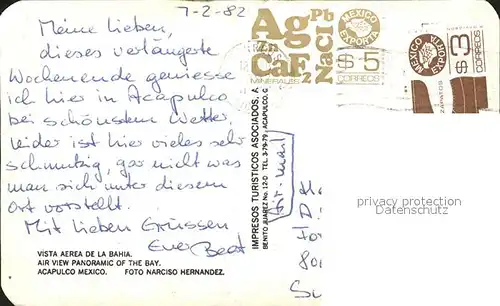 7-2-82
Meine Lieben,
dieses verlängerte
Wochenende geniesse
ich hier in Acapulco
bei schönstem Wetter.
Leider ist hier vieles sehr
schmutzig, gar nicht was
man sich unter diesem
Ort vorstellt.
Mit lieben Grüssen
Euer Beat
VISTA AEREA DE LA BAHIA.
AIR VIEW PANORAMIC OF THE BAY.
ACAPULCO MEXICO. FOTO NARCISO HERNANDEZ.
IMPRESOS TURISTICOS ASOCIADOS, A
BENITO JUAREZ No. 12-D TEL. 3-79-79 / ACAPULCO, G
Air-mail
Ag Pb
Zn NaCl
CaF2
MINERALES
MEXICO
EXPORTA
$5
CORREOS
MEXICO
EXPORTA
$3
CORREOS
ZAPATOS
privacy protection
Datenschutz